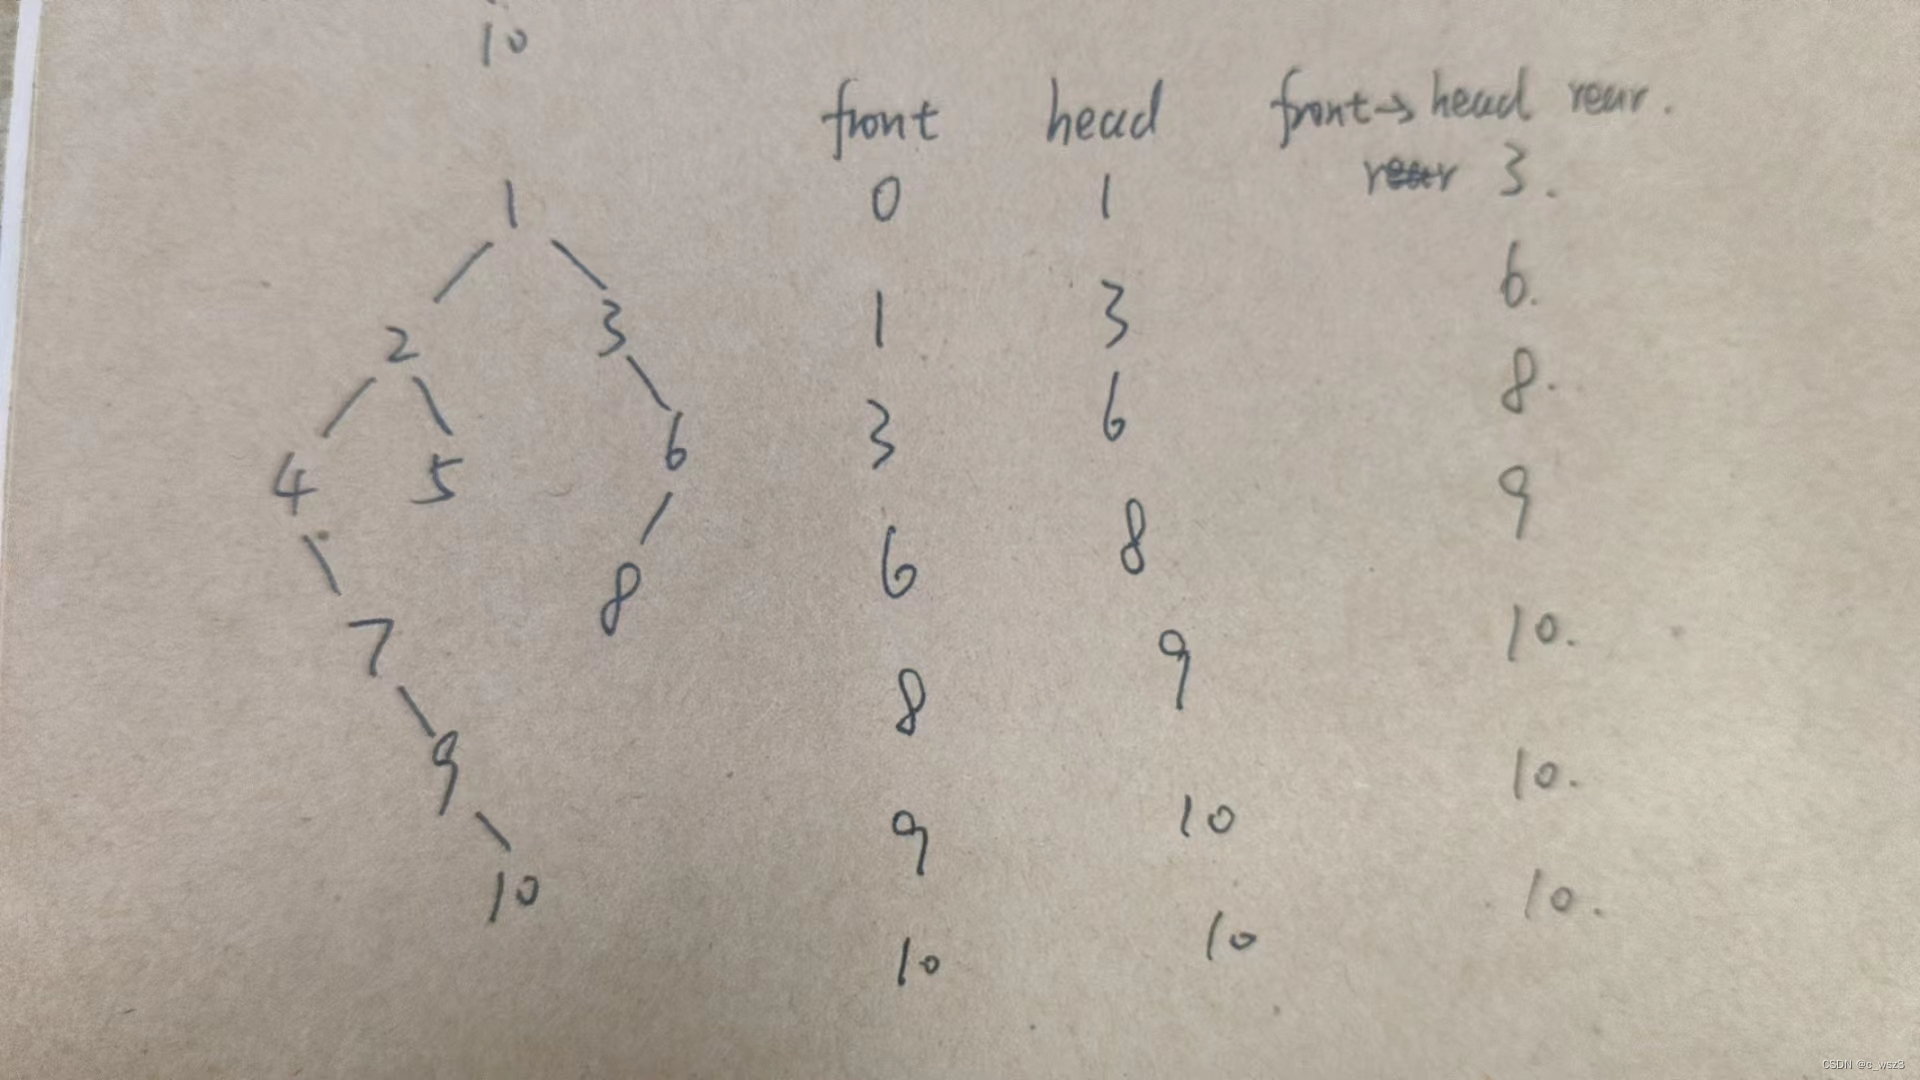 10
front head front→head rear.
rear 3.
0 1
1
6.
2 3 1 3
8.
4 5 6 3 6
9
8 6 8
7 10.
8 9
9 10.
9 10
10 10.
10 10
CSDN @c_wsz3